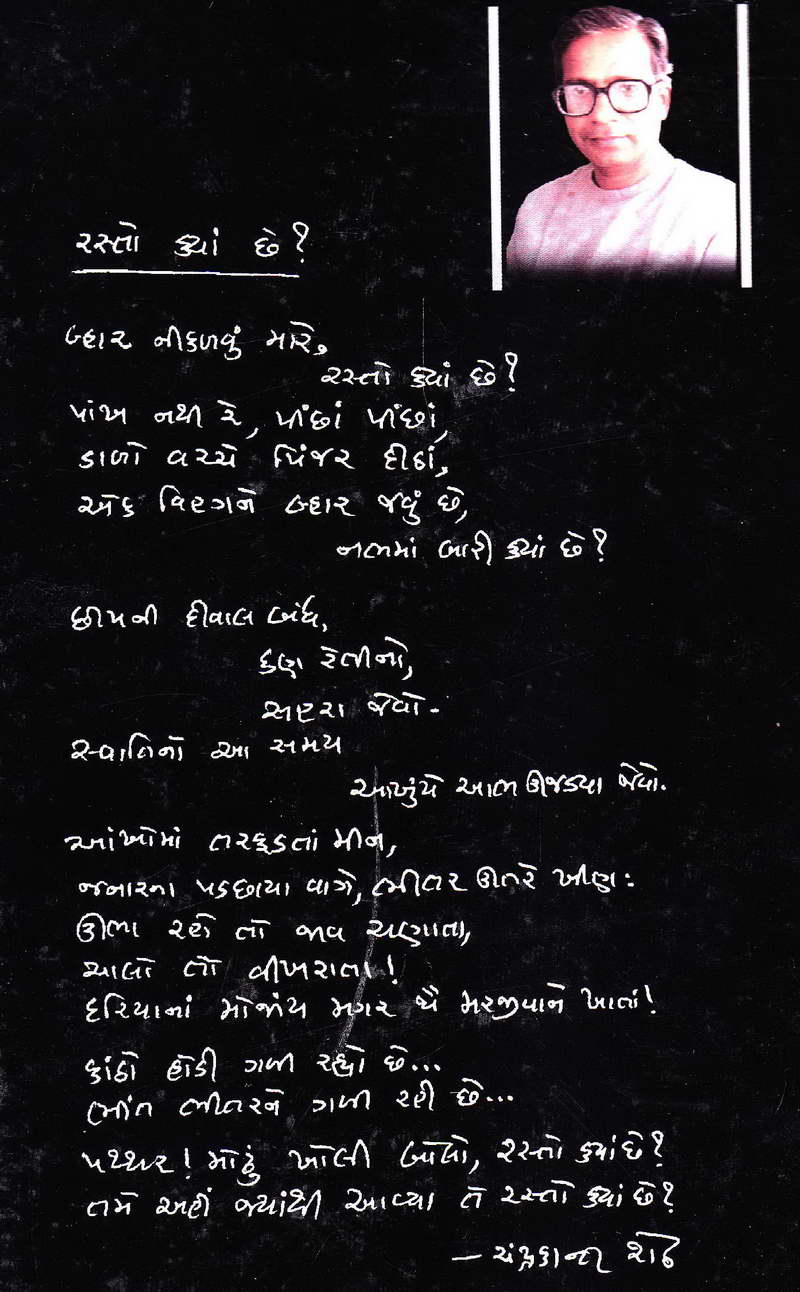 રસ્તો ક્યાં છે?
બ્હાર નીકળવું મારે,
રસ્તો ક્યાં છે?
પાંખ નથી રે, પીંછાં પીંછાં,
ડાળો વચ્ચે પિંજર દીઠાં,
એક વિહગને બ્હાર જવું છે,
નભમાં બારી ક્યાં છે?
છીપની દીવાલ બંધ,
કણ રેતીનો,
સહરા જેવો-
સ્વાતિનો આ સમય
આખુંયે આભ ઊજડ્યા જેવો.
આંખોમાં તરફડતાં મીન,
જનારના પડછાયા વાગે, ભીતર ઊતરે ખીણ:
ઊભા રહો તો જાવ ચણાતા,
ચાલો તો વીખરાતા!
દરિયાનાં મોજાંય મગર થૈ મરજીવાને ખાતાં!
કાંઠો હોડી ગળી રહ્યો છે...
ભીંત ભીતરને ગળી રહી છે...
પથ્થર! મોઢું ખોલી બોલો, રસ્તો ક્યાં છે?
તમે અહીં જ્યાંથી આવ્યા તે રસ્તો ક્યાં છે?
– ચંદ્રકાન્ત શેઠ